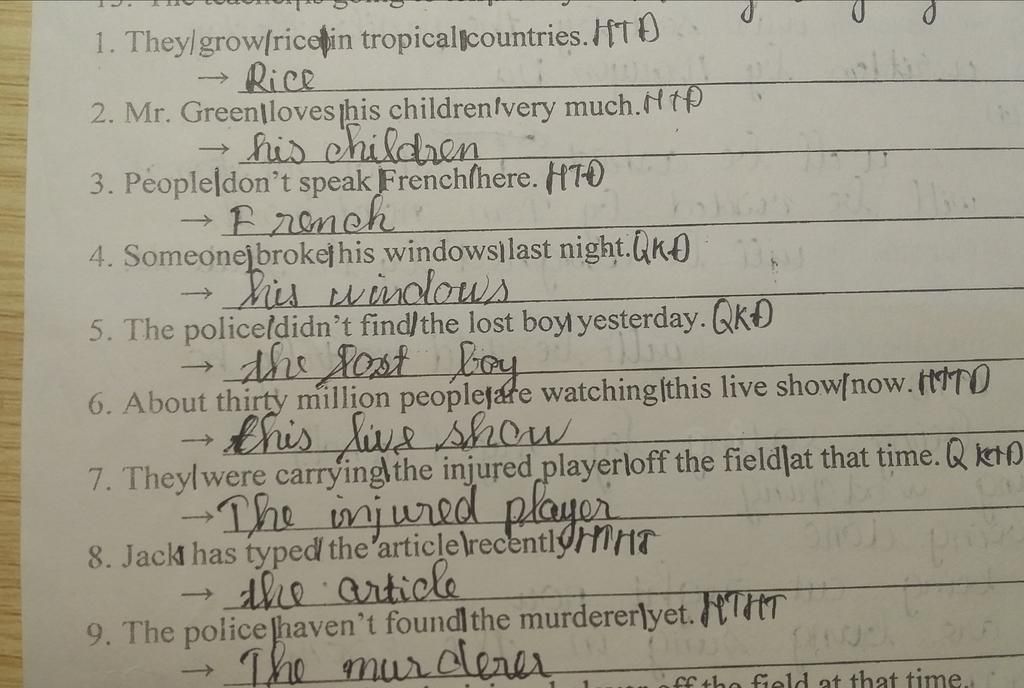 1. They/grow/rice/in tropical/countries. HTĐ
→ Rice
2. Mr. Green/loves/his children/very much. HTĐ
→ his children
3. People/don't speak/French/here. HTĐ
→ French
4. Someone/broke/his windows/last night. QKĐ
→ his windows
5. The police/didn't find/the lost boy/yesterday. QKĐ
→ the lost boy
6. About thirty million people/are watching/this live show/now. HTTD
→ this live show
7. They/were carrying/the injured player/off the field/at that time. QKTD
→ The injured player
8. Jack/has typed/the article/recently HTHT
→ the article
9. The police/haven't found/the murderer/yet. HTHT
→ The murderer
off the field at that time.